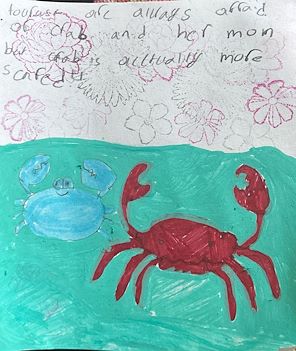 tourist are always afraid
of crab and her mom
but crab is acltually more
scared!!